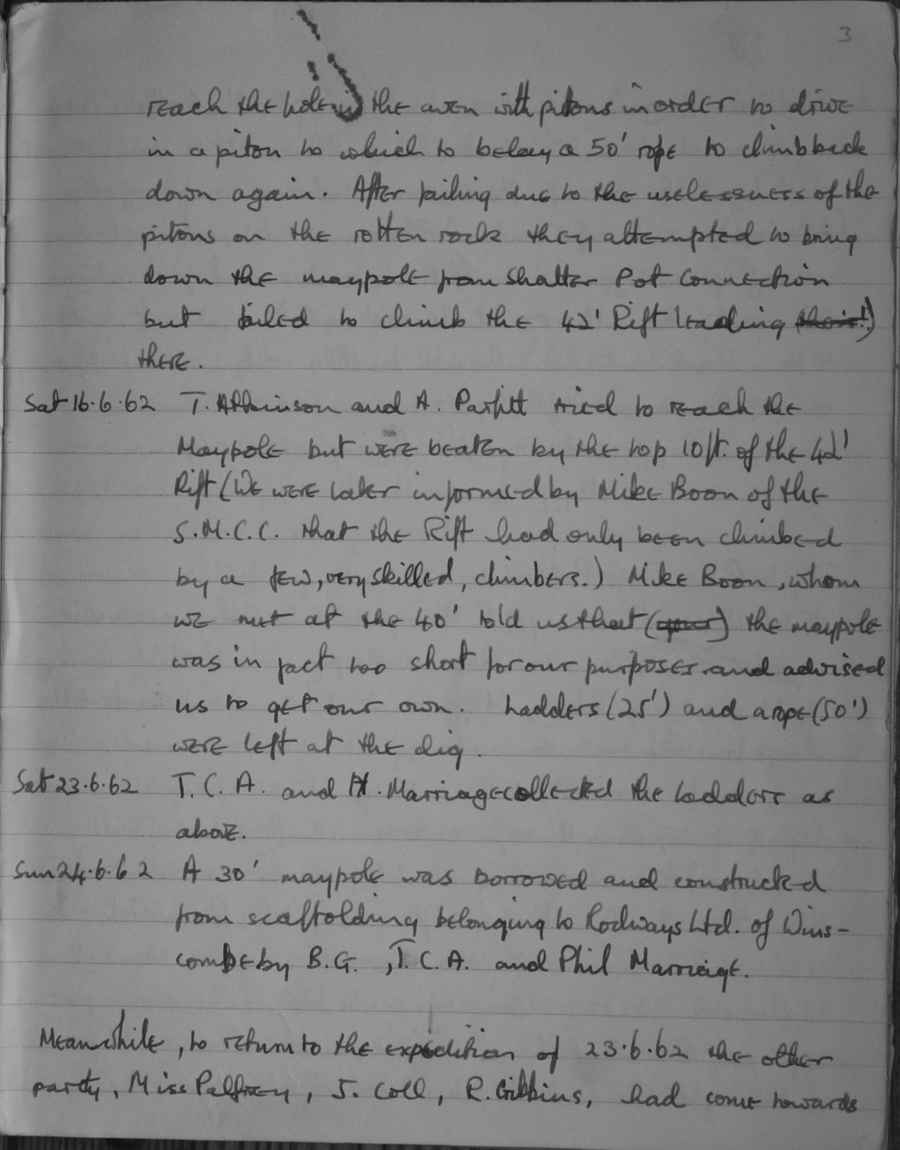 3
reach the hole in the aven with pitons in order to drive
in a piton to which to belay a 50' rope to climb back
down again. After failing due to the uselessness of the
pitons on the rotten rock they attempted to bring
down the maypole from Shatter Pot Connection
but failed to climb the 42' Rift leading
there.
Sat 16.6.62 T. Atkinson and A. Parfitt tried to reach the
Maypole but were beaten by the top 10ft. of the 42'
Rift (We were later informed by Mike Boon of the
S.M.C.C. that the Rift had only been climbed
by a few, very skilled, climbers.) Mike Boon, whom
we met at the 40' told us that the maypole
was in fact too short for our purposes and advised
us to get our own. Ladders (25') and a rope (50')
were left at the dig.
Sat 23.6.62 T.C.A. and H. Marriage collected the ladders as
above.
Sun 24.6.62 A 30' maypole was borrowed and constructed
from scaffolding belonging to Rodways Ltd. of Wins-
combe by B.G., T.C.A. and Phil Marriage.
Meanwhile, to return to the expedition of 23.6.62 the other
party, Miss Palfrey, J. Coll, R. Gibbins, had come towards